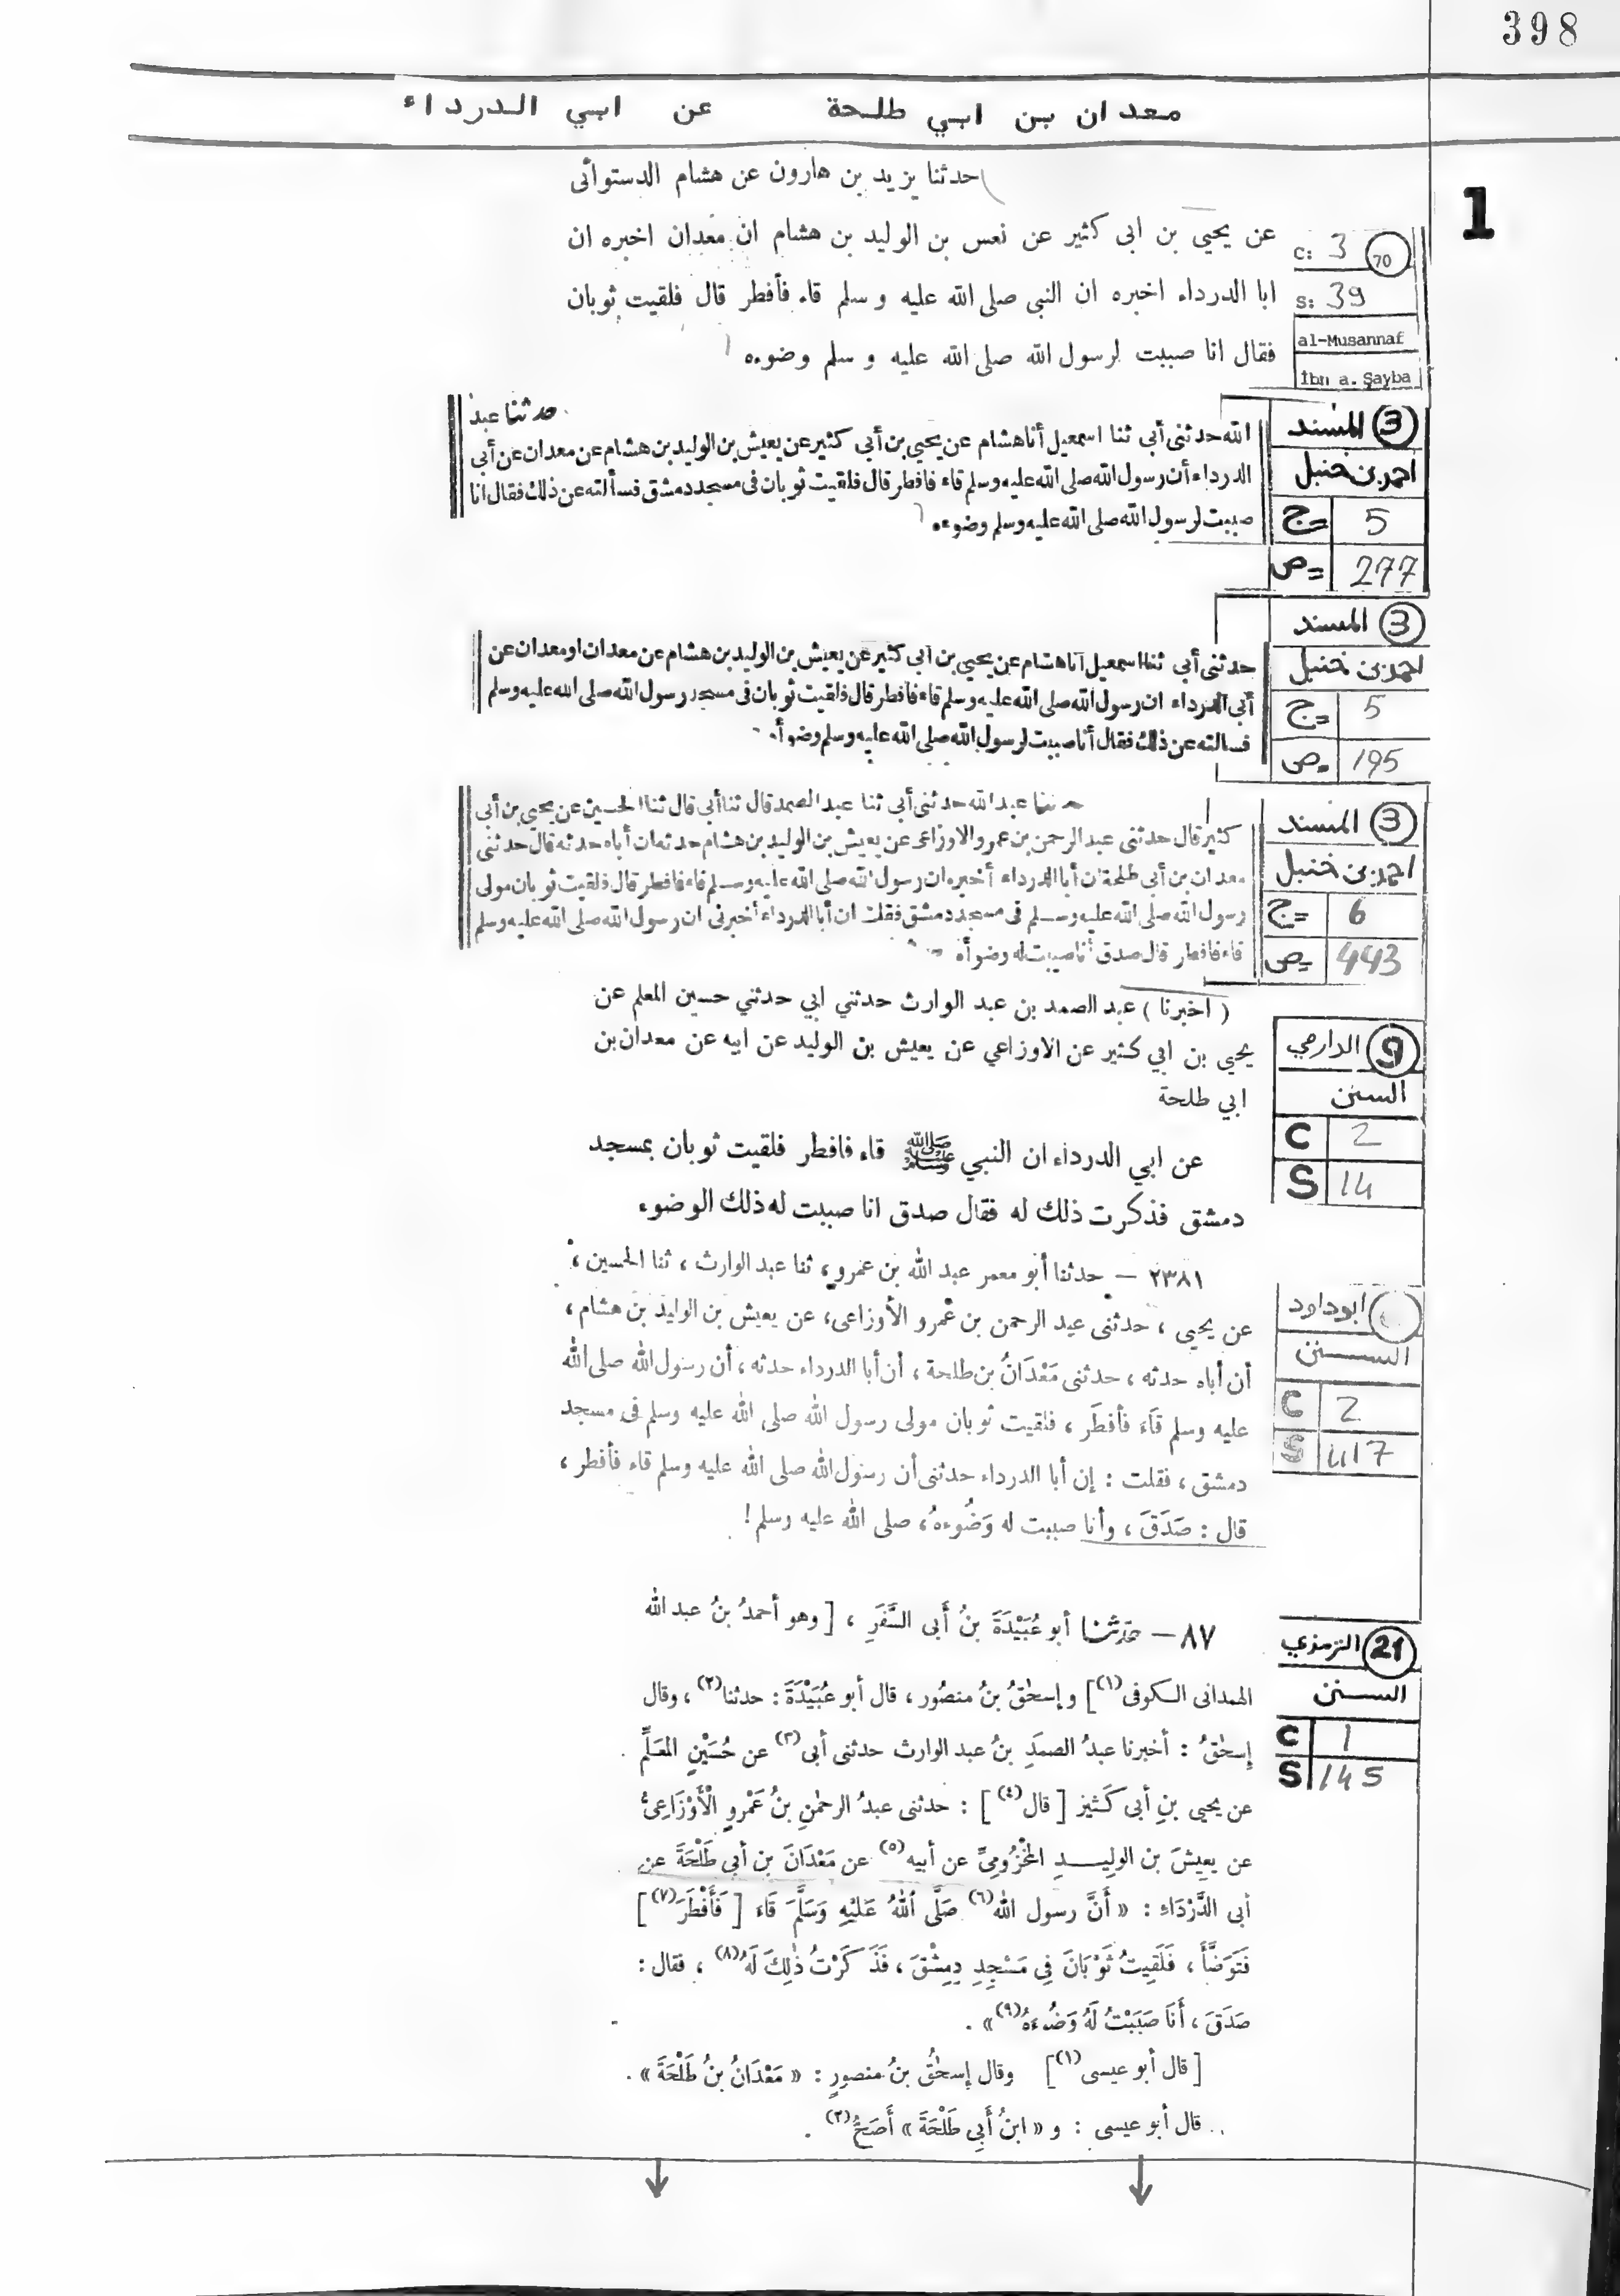 398
معدان بن ابي طلحة عن ابي الدرداء
1
حدثنا يزيد بن هارون عن هشام الدستوائى
عن يحيى بن ابى كثير عن نعس بن الوليد بن هشام ان معدان اخبره ان
ابا الدرداء اخبره ان النبى صلى الله عليه و سلم قاء فأفطر قال فلقيت ثوبان
فقال انا صببت لرسول الله صلى الله عليه و سلم وضوءه
C: 3 70
S: 39
al-Musannaf
İbn a. Şayba
حدثنا عبد
الله حدثنى أبى ثنا اسمعيل أنا هشام عن يحيى بن أبى كثير عن يعيش بن الوليد بن هشام عن معدان عن أبى
الدرداء أن رسول الله صلى الله عليه وسلم قاء فافطر قال فلقيت ثوبان فى مسجد دمشق فسألته عن ذلك فقال انا
صببت لرسول الله صلى الله عليه وسلم وضوءه
3 المسند
احمد بن حنبل
ج= 5
ص= 277
حدثنى أبى ثنا اسمعيل أنا هشام عن يحيى بن أبى كثير عن يعيش بن الوليد بن هشام عن معدان او معدان عن
أبى الدرداء ان رسول الله صلى الله عليه وسلم قاء فافطر قال فلقيت ثوبان فى مسجد رسول الله صلى الله عليه وسلم
فسالته عن ذلك فقال أنا صببت لرسول الله صلى الله عليه وسلم وضوأه
3 المسند
احمد بن حنبل
ج= 5
ص= 195
حدثنا عبد الله حدثنى أبى ثنا عبد الصمد قال ثنا أبى قال ثنا الحسين عن يحيى بن أبى
كثير قال حدثنى عبد الرحمن بن عمرو الاوزاعى عن يعيش بن الوليد بن هشام حدثه ان أباه حدثه قال حدثنى
معدان بن أبى طلحة ان أبا الدرداء أخبره ان رسول الله صلى الله عليه وسلم قاء فافطر قال فلقيت ثوبان مولى
رسول الله صلى الله عليه وسلم فى مسجد دمشق فقلت ان أبا الدرداء أخبرنى ان رسول الله صلى الله عليه وسلم
قاء فافطر قال صدق أنا صببت له وضوأه
3 المسند
احمد بن حنبل
ج= 6
ص= 443
( اخبرنا ) عبد الصمد بن عبد الوارث حدثني ابي حدثني حسين المعلم عن
يحيى بن ابي كثير عن الاوزاعي عن يعيش بن الوليد عن ابيه عن معدان بن
ابي طلحة
عن ابي الدرداء ان النبي ﷺ قاء فافطر فلقيت ثوبان بمسجد
دمشق فذكرت ذلك له فقال صدق انا صببت له ذلك الوضوء
9 الدارمي
السنن
C 2
S 14
٢٣٨١ — حدثنا أبو معمر عبد الله بن عمرو، ثنا عبد الوارث، ثنا الحسين،
عن يحيى، حدثنى عبد الرحمن بن عمرو الأوزاعى، عن يعيش بن الوليد بن هشام،
أن أباه حدثه، حدثنى مَعْدَانُ بن طلحة، أن أبا الدرداء حدثه، أن رسول الله صلى الله
عليه وسلم قَاءَ فأفطَر، فلقيت ثوبان مولى رسول الله صلى الله عليه وسلم فى مسجد
دمشق، فقلت : إن أبا الدرداء حدثنى أن رسول الله صلى الله عليه وسلم قاء فأفطر،
قال : صَدَقَ، وأنا صببت له وَضُوءهُ، صلى الله عليه وسلم!
أبو داود
السنن
C 2
S 417
٨٧ — حدثنا أبو عُبَيْدَةَ بنُ أَبى السَّفَرِ، [ وهو أحمدُ بنُ عبد الله
الهمدانى الكوفى(١) ] وإسحٰقُ بنُ منصُور، قال أبو عُبَيْدَةَ : حدثنا(٢)، وقال
إسحٰقُ : أخبرنا عبدُ الصمَدِ بنُ عبد الوارث حدثنى أبى(٣) عن حُسَيْنٍ المعَلِّمِ
عن يحيى بنِ أبى كَثيرٍ [ قال(٤) ] : حدثنى عبدُ الرحمٰنِ بنُ عَمْرٍو الْأَوْزَاعِىُّ
عن يعِيشَ بن الوليدِ المخْزُومِىِّ عن أبيه(٥) عن مَعْدَانَ بن أبى طَلْحَةَ عن
أبى الدَّرْدَاءِ : « أَنَّ رسول الله(٦) صَلَّى اللهُ عَلَيْهِ وَسَلَّمَ قَاءَ [ فَأَفْطَرَ(٧) ]
فَتَوَضَّأَ، فَلَقِيتُ ثَوْبَانَ فِى مَسْجِدِ دِمِشْقَ، فَذَكَرْتُ ذٰلِكَ لَهُ(٨)، فقال :
صَدَقَ، أَنَا صَبَبْتُ لَهُ وَضُوءَهُ(٩) ».
[ قال أبو عيسى(١) ] وقال إسحٰقُ بنُ منصورٍ : « مَعْدَانُ بنُ طَلْحَةَ ».
قال أبو عيسى : و « ابنُ أَبِى طَلْحَةَ » أَصَحُّ(٢).
21 الترمذي
السنن
C 1
S 145